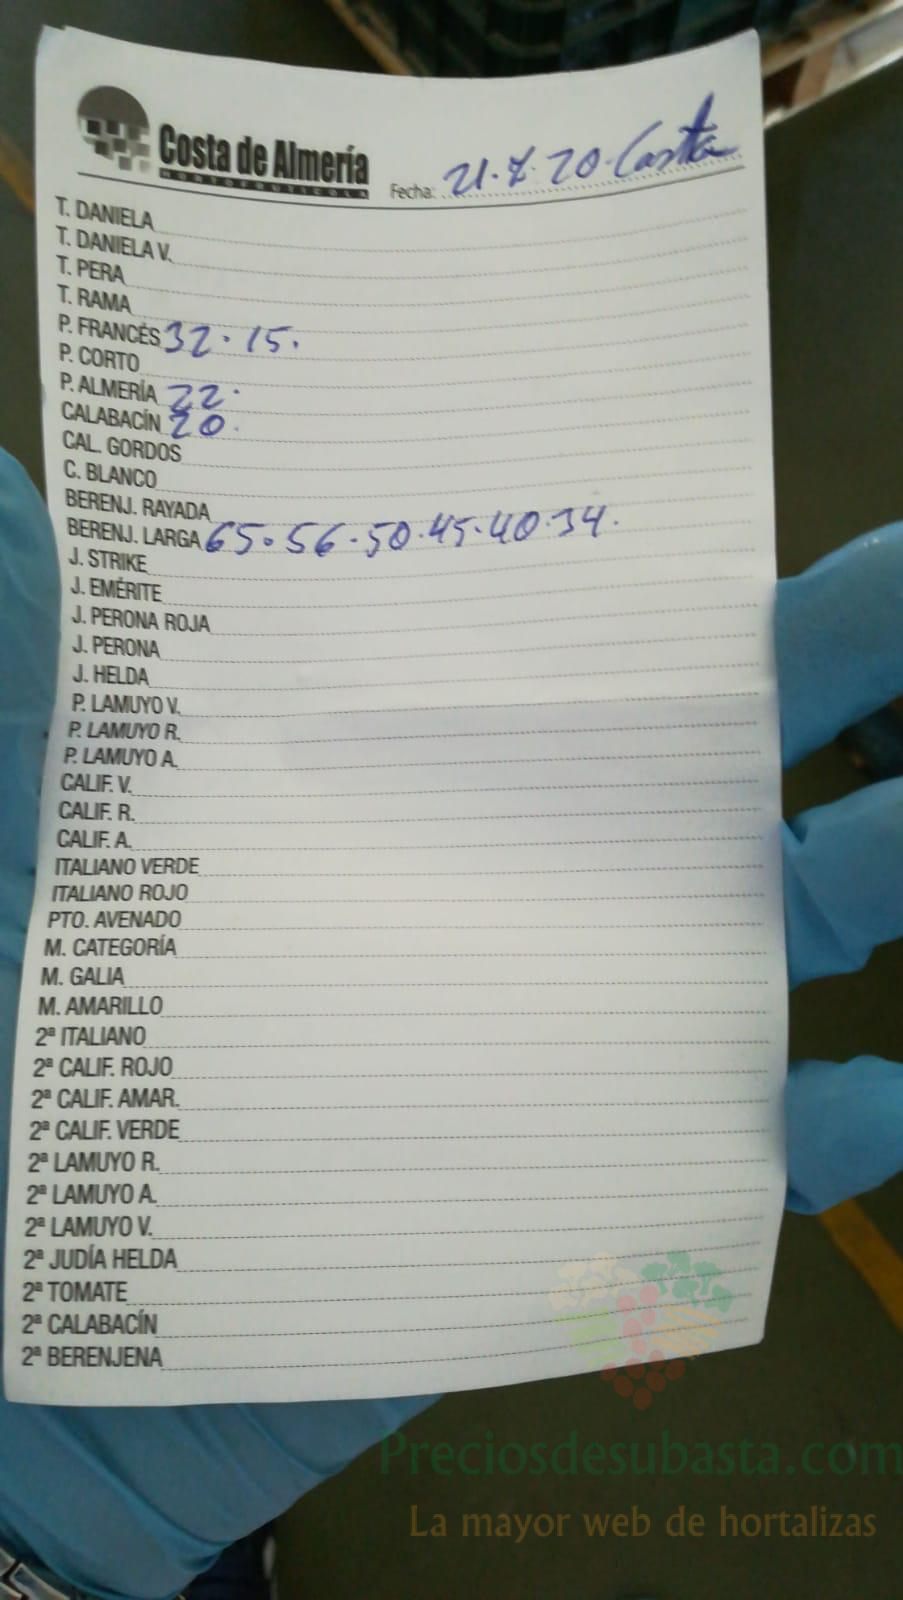 Costa de Almería
HORTOFRUTICOLA
Fecha: 21.7.20. Costa
T. DANIELA
T. DANIELA V.
T. PERA
T. RAMA
P. FRANCÉS 32. 15.
P. CORTO
P. ALMERÍA 22.
CALABACÍN 20.
CAL. GORDOS
C. BLANCO
BERENJ. RAYADA
BERENJ. LARGA 65. 56. 50. 45. 40. 34.
J. STRIKE
J. EMÉRITE
J. PERONA ROJA
J. PERONA
J. HELDA
P. LAMUYO V.
P. LAMUYO R.
P. LAMUYO A.
CALIF. V.
CALIF. R.
CALIF. A.
ITALIANO VERDE
ITALIANO ROJO
PTO. AVENADO
M. CATEGORÍA
M. GALIA
M. AMARILLO
2ª ITALIANO
2ª CALIF. ROJO
2ª CALIF. AMAR.
2ª CALIF. VERDE
2ª LAMUYO R.
2ª LAMUYO A.
2ª LAMUYO V.
2ª JUDÍA HELDA
2ª TOMATE
2ª CALABACÍN
2ª BERENJENA
Preciosdesubasta.com
La mayor web de hortalizas